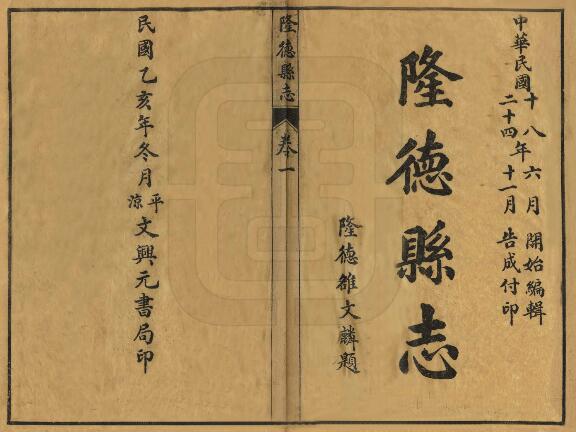 中華民國十八年六月開始編輯
二十四年十一月告成付印
隆德縣志
隆德雒文麟題
隆德縣志 卷一
民國乙亥年冬月平涼文興元書局印